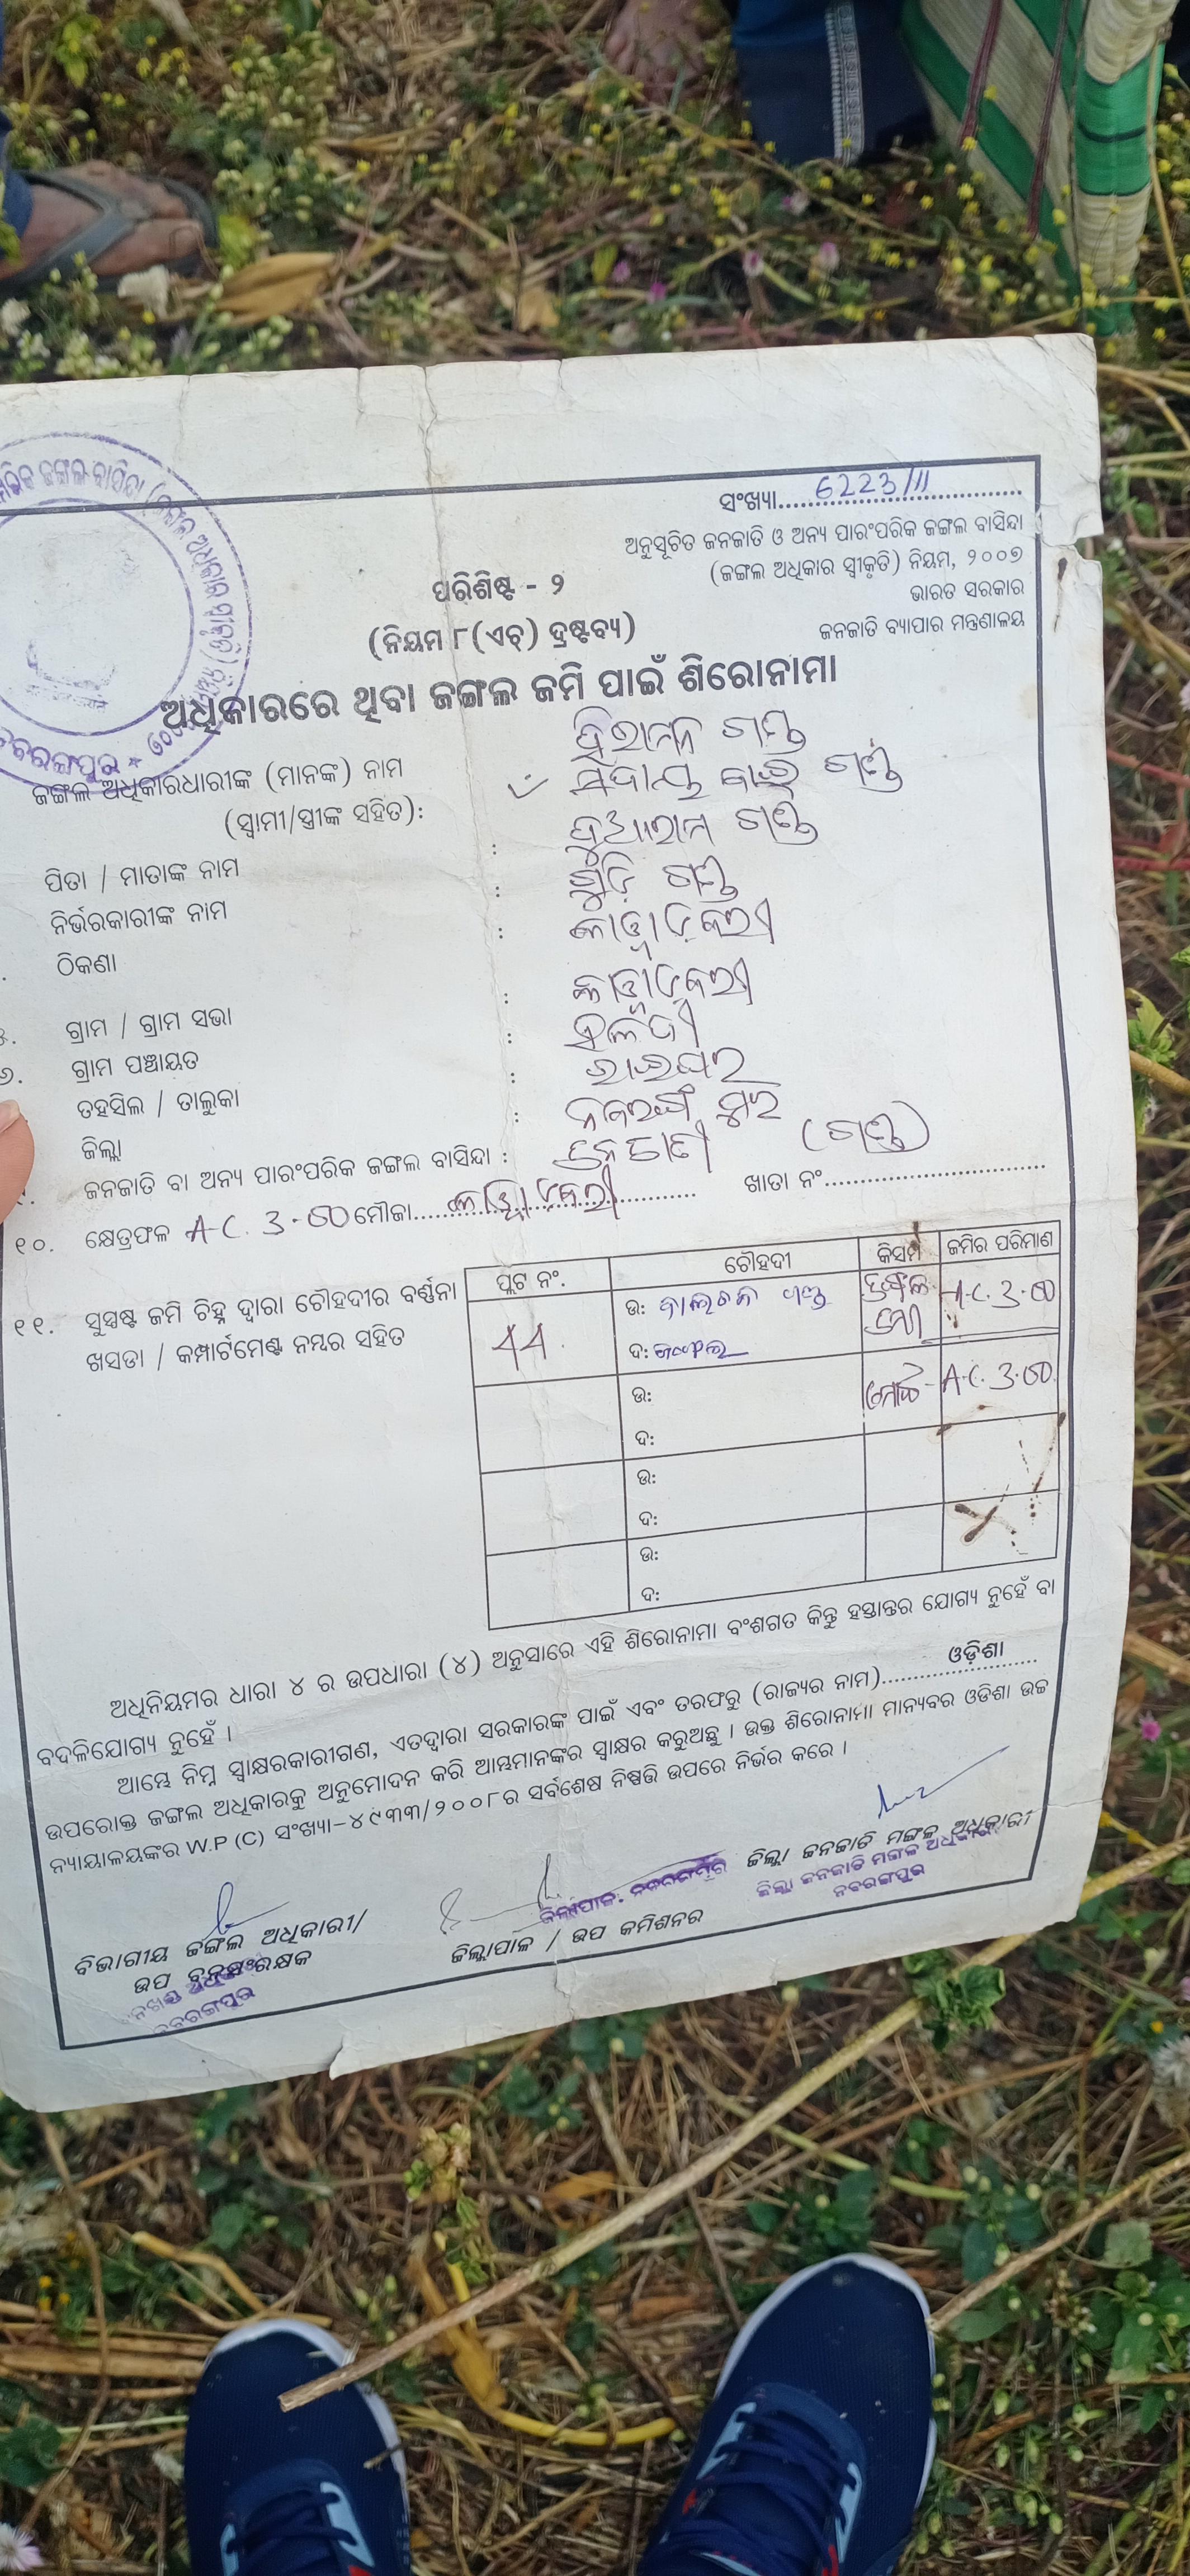 ସଂଖ୍ୟା.......6223/11.......
ଅନୁସୂଚିତ ଜନଜାତି ଓ ଅନ୍ୟ ପାରଂପରିକ ଜଙ୍ଗଲ ବାସିନ୍ଦା
(ଜଙ୍ଗଲ ଅଧିକାର ସ୍ୱୀକୃତି) ନିୟମ, ୨୦୦୭
ଭାରତ ସରକାର
ଜନଜାତି ବ୍ୟାପାର ମନ୍ତ୍ରଣାଳୟ
ପରିଶିଷ୍ଟ - ୨
(ନିୟମ ୮(ଏଚ୍) ଦ୍ରଷ୍ଟବ୍ୟ)
ଅଧିକାରରେ ଥିବା ଜଙ୍ଗଲ ଜମି ପାଇଁ ଶିରୋନାମା
ଜଙ୍ଗଲ ଅଧିକାରଧାରୀଙ୍କ (ମାନଙ୍କ) ନାମ ଗଣ୍ଡ
(ସ୍ୱାମୀ/ସ୍ତ୍ରୀଙ୍କ ସହିତ): ବାଇ ଗଣ୍ଡ
ପିତା / ମାତାଙ୍କ ନାମ : ଗଣ୍ଡ
ନିର୍ଭରକାରୀଙ୍କ ନାମ : ଗଣ୍ଡ
ଠିକଣା :
୫. ଗ୍ରାମ / ଗ୍ରାମ ସଭା :
୬. ଗ୍ରାମ ପଞ୍ଚାୟତ :
ତହସିଲ / ତାଲୁକା : ରାଇଘର
ଜିଲ୍ଲା : ନବରଙ୍ଗପୁର
ଜନଜାତି ବା ଅନ୍ୟ ପାରଂପରିକ ଜଙ୍ଗଲ ବାସିନ୍ଦା : ଜନଜାତି (ଗଣ୍ଡ)
୧୦. କ୍ଷେତ୍ରଫଳ A.C. 3.60 ମୌଜା.............. ଖାତା ନଂ..............
୧୧. ସୁସ୍ପଷ୍ଟ ଜମି ଚିହ୍ନ ଦ୍ୱାରା ଚୌହଦୀର ବର୍ଣ୍ଣନା
ଖସଡା / କମ୍ପାର୍ଟମେଣ୍ଟ ନମ୍ବର ସହିତ
ପ୍ଲଟ ନଂ. ଚୌହଦୀ କିସମ ଜମିର ପରିମାଣ
44. ଉ: ଗଣ୍ଡ ଜଙ୍ଗଲ ଜମି A.C. 3.60
ଦ: ଜଙ୍ଗଲ
ଉ: ମୋଟ - A.C. 3.60
ଦ:
ଉ:
ଦ:
ଉ:
ଦ:
ଅଧିନିୟମର ଧାରା ୪ ର ଉପଧାରା (୪) ଅନୁସାରେ ଏହି ଶିରୋନାମା ବଂଶଗତ କିନ୍ତୁ ହସ୍ତାନ୍ତର ଯୋଗ୍ୟ ନୁହେଁ ବା
ବଦଳିଯୋଗ୍ୟ ନୁହେଁ ।
ଆମ୍ଭେ ନିମ୍ନ ସ୍ୱାକ୍ଷରକାରୀଗଣ, ଏତଦ୍ୱାରା ସରକାରଙ୍କ ପାଇଁ ଏବଂ ତରଫରୁ (ରାଜ୍ୟର ନାମ).......ଓଡ଼ିଶା.......
ଉପରୋକ୍ତ ଜଙ୍ଗଲ ଅଧିକାରକୁ ଅନୁମୋଦନ କରି ଆମ୍ଭମାନଙ୍କର ସ୍ୱାକ୍ଷର କରୁଅଛୁ । ଉକ୍ତ ଶିରୋନାମା ମାନ୍ୟବର ଓଡିଶା ଉଚ୍ଚ
ନ୍ୟାୟାଳୟଙ୍କର W.P (C) ସଂଖ୍ୟା-୪୯୩୩/୨୦୦୮ର ସର୍ବଶେଷ ନିଷ୍ପତ୍ତି ଉପରେ ନିର୍ଭର କରେ ।
ଜିଲ୍ଲା ଜନଜାତି ମଙ୍ଗଳ ଅଧିକାରୀ
ଜିଲ୍ଲା ଜନଜାତି ମଙ୍ଗଳ ଅଧିକାରୀ
ନବରଙ୍ଗପୁର
ଜିଲ୍ଲାପାଳ, ନବରଙ୍ଗପୁର
ଜିଲ୍ଲାପାଳ / ଉପ କମିଶନର
ବିଭାଗୀୟ ଜଙ୍ଗଲ ଅଧିକାରୀ/
ଉପ ବନସଂରକ୍ଷକ
ନବରଙ୍ଗପୁର